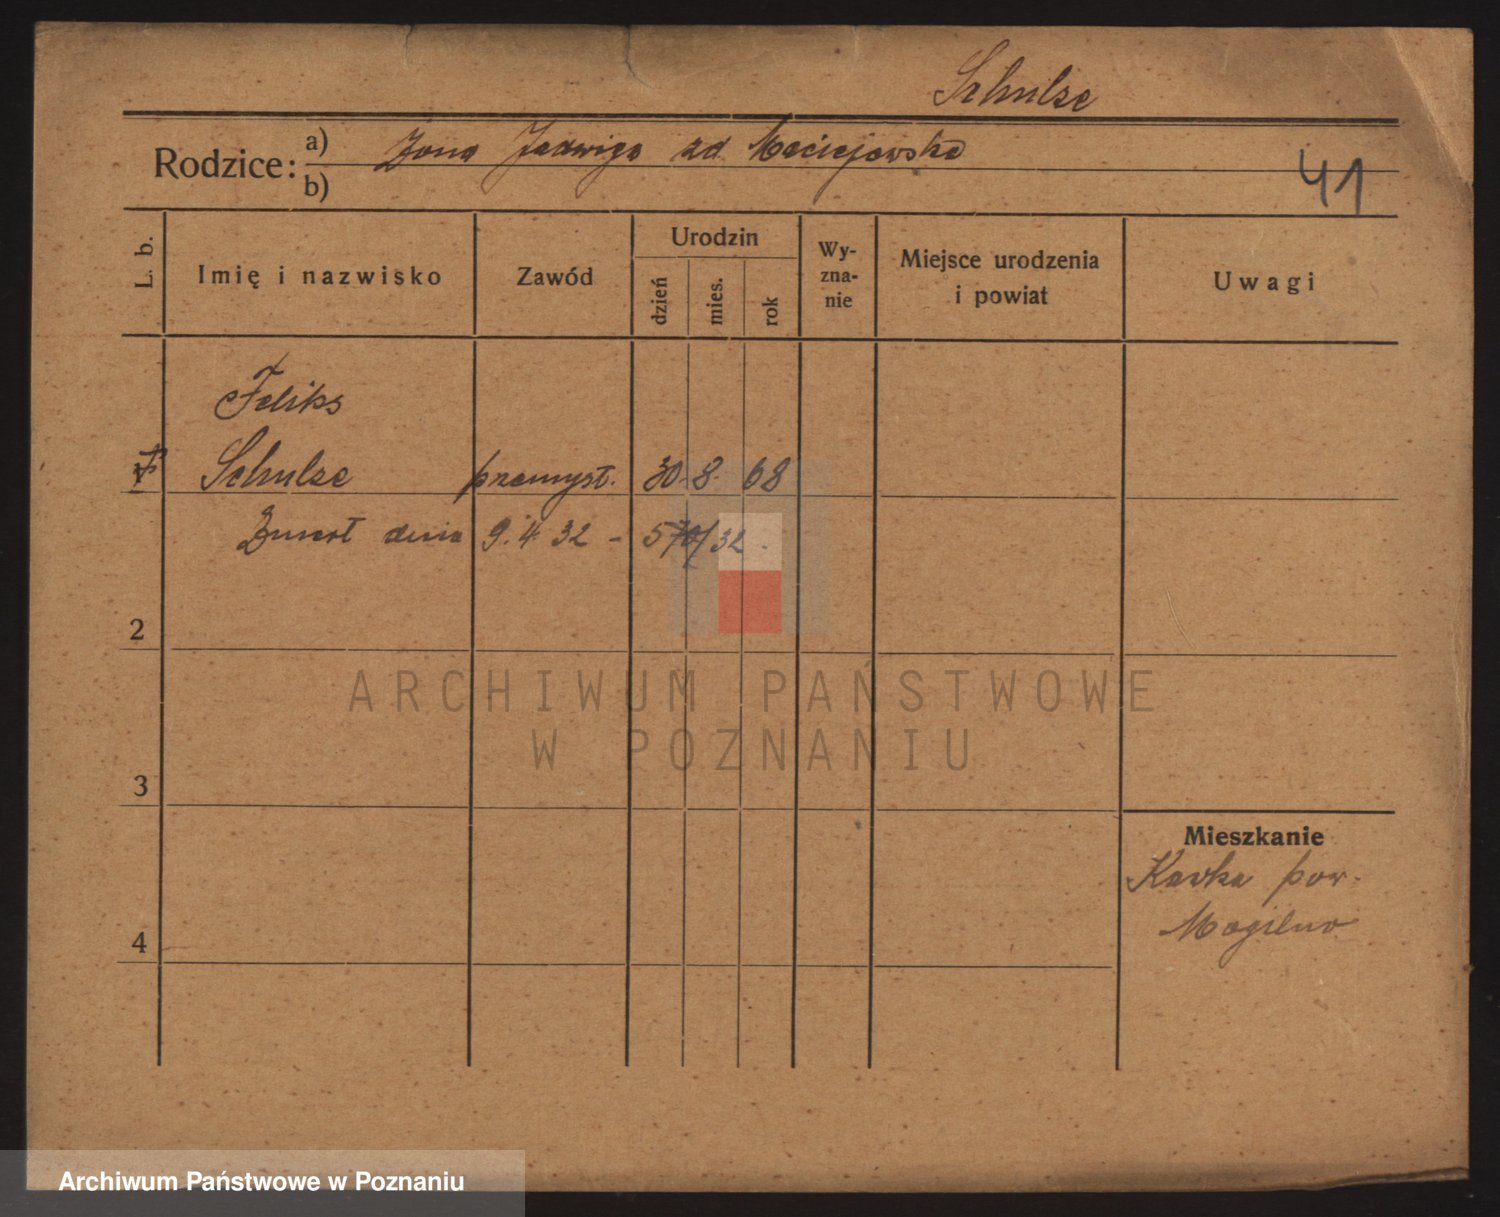 Schulze
Rodzice: a) Żona Jadwiga zd Maciejewska
b)
41
L. b.
Imię i nazwisko
Zawód
Urodzin
dzień
mies.
rok
Wy-
zna-
nie
Miejsce urodzenia
i powiat
Uwagi
Feliks
1 Schulze przemysł. 30. 8. 68
Zmarł dnia 9. 4. 32 - 570/32.
2
3
4
Mieszkanie
Kawka pow.
Mogilno
ARCHIWUM PAŃSTWOWE
W POZNANIU
Archiwum Państwowe w Poznaniu